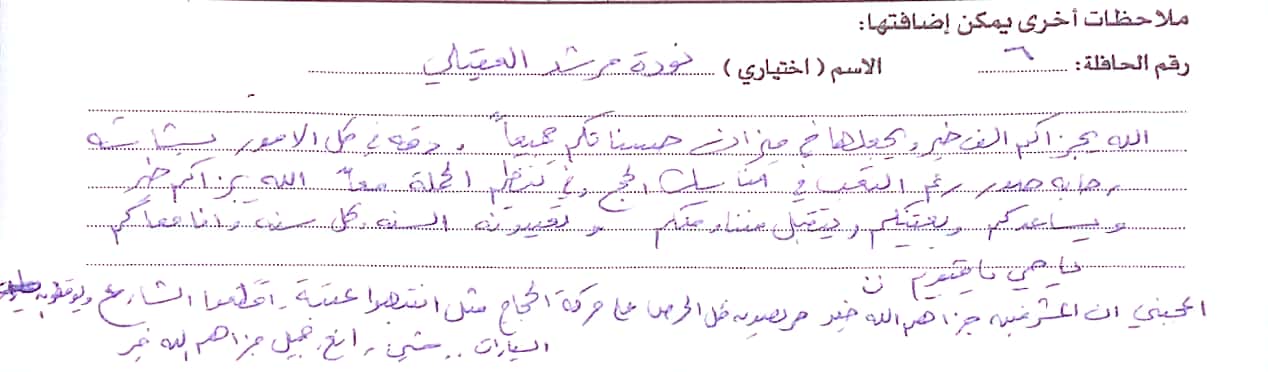 ملاحظات أخرى يمكن إضافتها:
رقم الحافلة: ٦ الاسم (اختياري) نودة مرشد العقيلي
الله يجزاكم الف خير ويجعلها في ميزان حسناتكم جميعاً ودقه في كل الامور بشاشه
رحابه صدور رغم التعب في مناسك الحج وفي تنظيم الحملة معاً الله يجزاكم خير
ويساعدكم ويعينكم ويتقبل منا ومنكم وتعيدونه السنه وكل سنه وانا معاكم
يا حي يا قيوم
اعجبني ان المشرفين جزاهم الله خير حريصين كل الحرص على حركة الحجاج مثل انتبهوا عتبة اقطعوا الشارع ويوقفون
السيارات .. شيء رائع جميل جزاهم الله خير